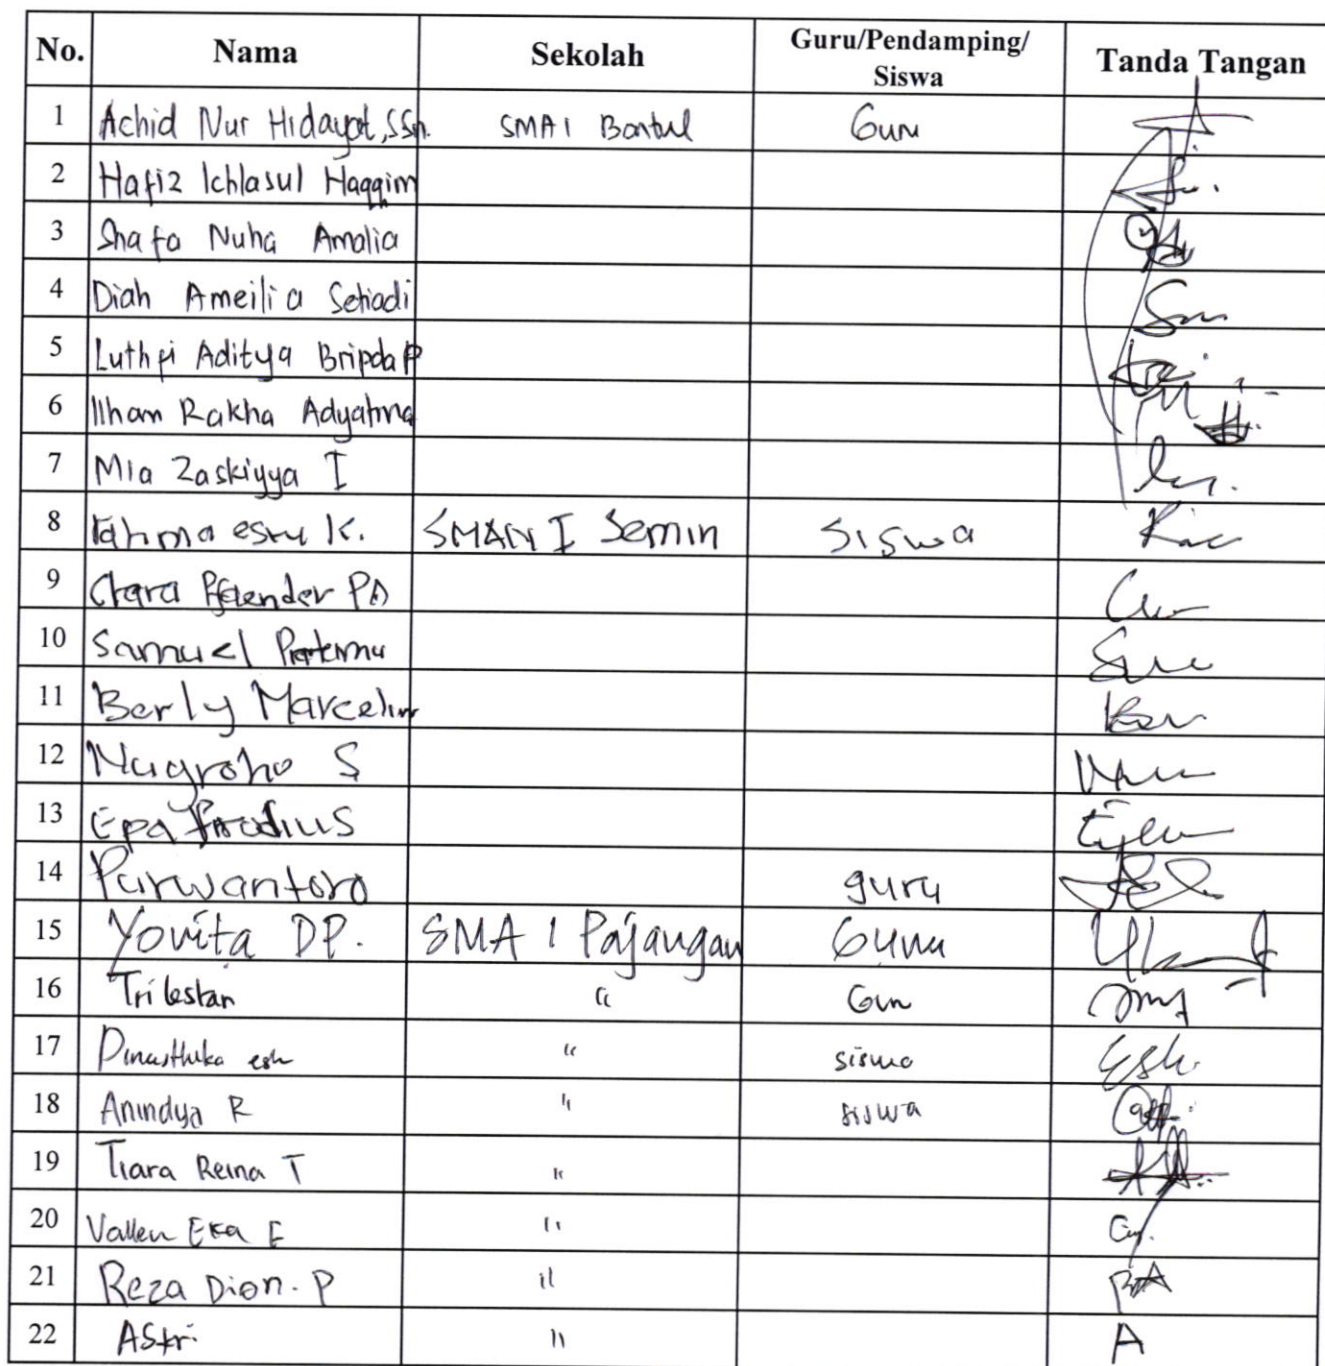 No. Nama Sekolah Guru/Pendamping/ Siswa Tanda Tangan
1 Achid Nur Hidayat, SSn. SMA 1 Bantul Guru
2 Hafiz Ichlasul Haqqim
3 Shafa Nuha Amalia
4 Diah Ameilia Setiadi
5 Luthfi Aditya Bripda P
6 Ilham Rakha Adyatma
7 Mia Zaskiyya I
8 Fahma esru K. SMAN I Semin Siswa
9 Clara PA
10 Samuel Pratama
11 Berly Marcelin
12 Nugroho S
13 Epa
14 Purwantoro guru
15 Yovita DP. SMA 1 Pajangan Guru
16 Tri lestari " Guru
17 esh " siswa
18 Anindya R " siswa
19 Tiara Reina T "
20 Vallen Eka E "
21 Reza Dion. P "
22 Astri " A